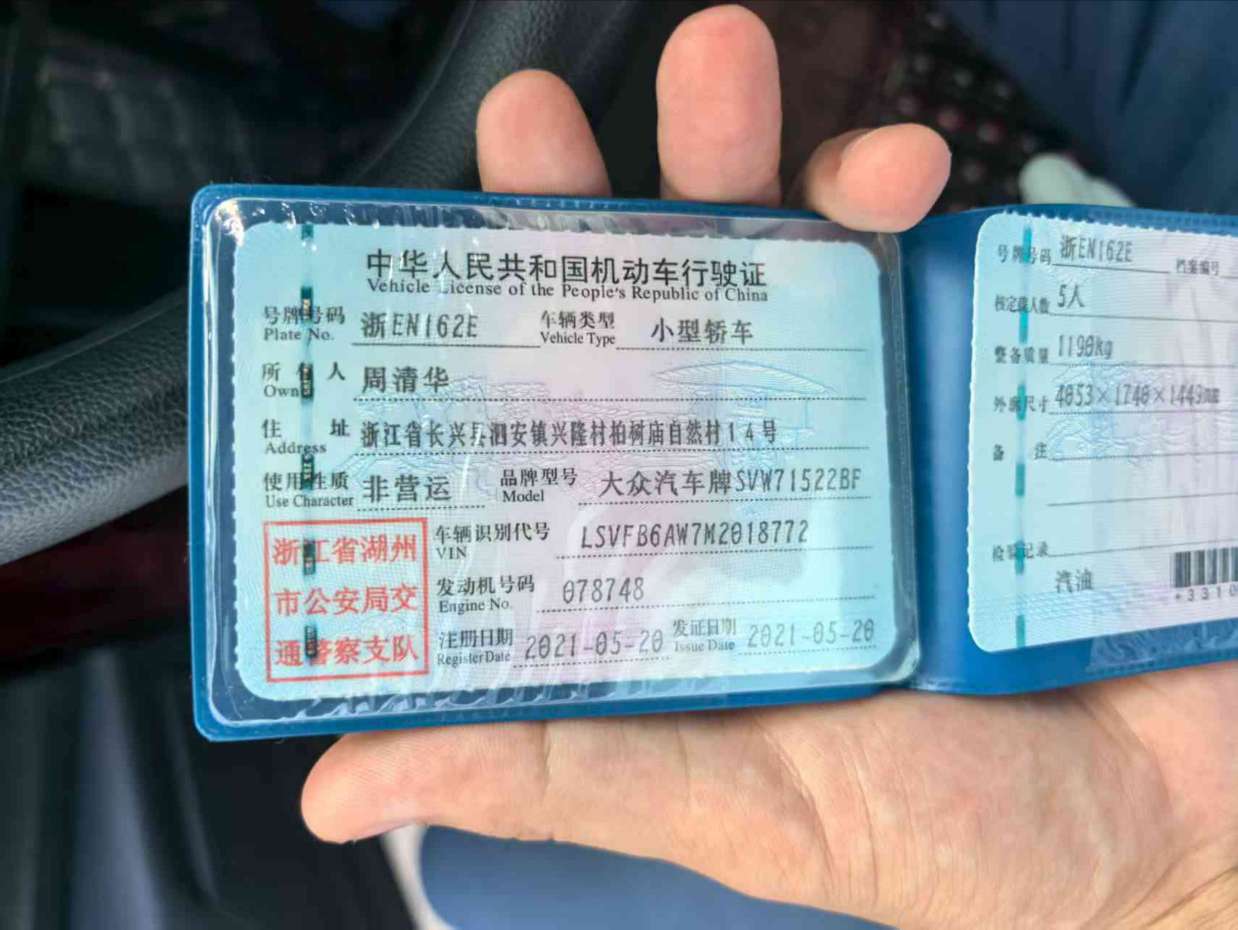 中华人民共和国机动车行驶证
Vehicle License of the People's Republic of China
号牌号码 浙EN162E 车辆类型 小型轿车
Plate No. Vehicle Type
所有人 周清华
Owner
住址 浙江省长兴县泗安镇兴隆村柏树庙自然村14号
Address
使用性质 非营运 品牌型号 大众汽车牌SVW71522BF
Use Character Model
浙江省湖州
市公安局交
通警察支队
车辆识别代号 LSVFB6AW7M2018772
VIN
发动机号码 078748
Engine No.
注册日期 2021-05-20 发证日期 2021-05-20
Register Date Issue Date
号牌号码 浙EN162E 档案编号
核定载人数 5人
整备质量 1190kg
外廓尺寸 4053×1740×1449mm
备注
检验记录
汽油